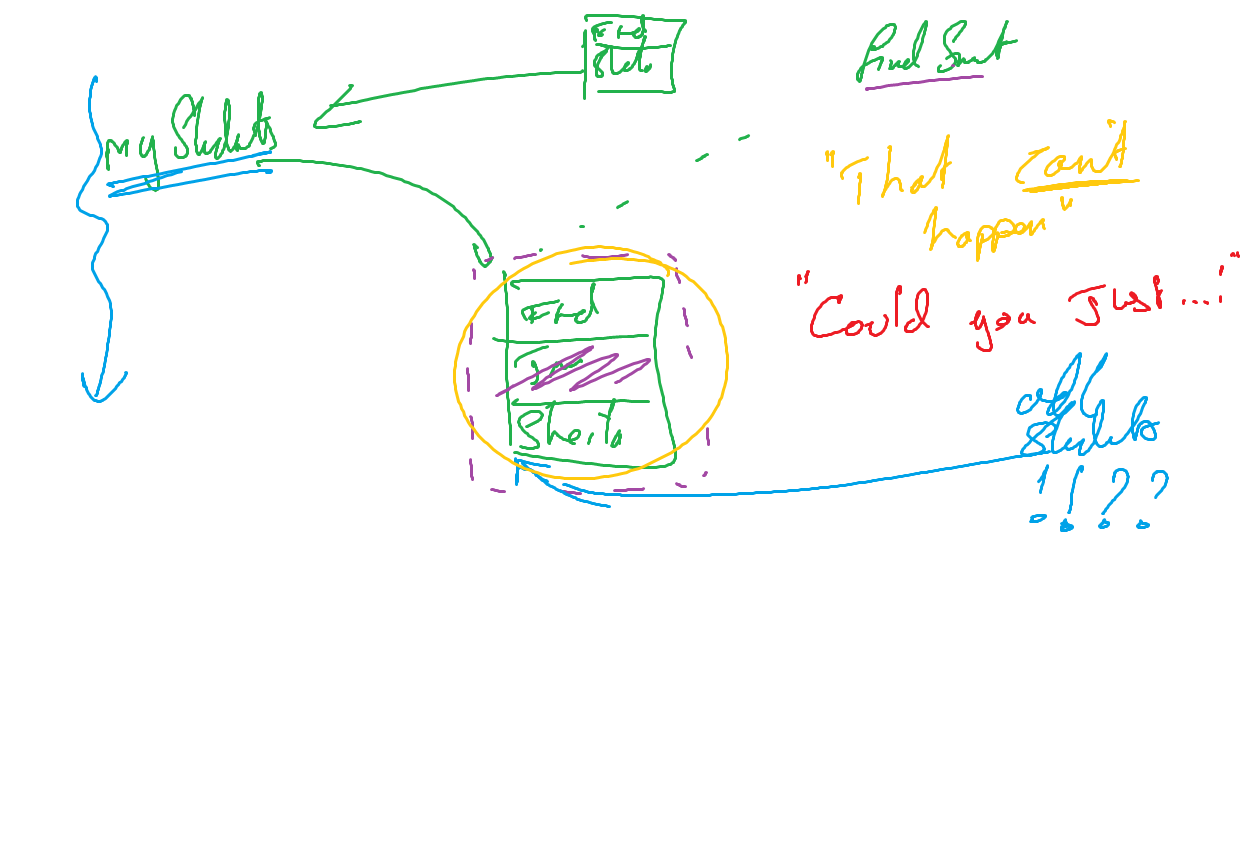 Fred
Sheila
my Students
"That can't
happen"
"Could you Just...!"
Fred
Sheila
add
Students
! ! ? ?